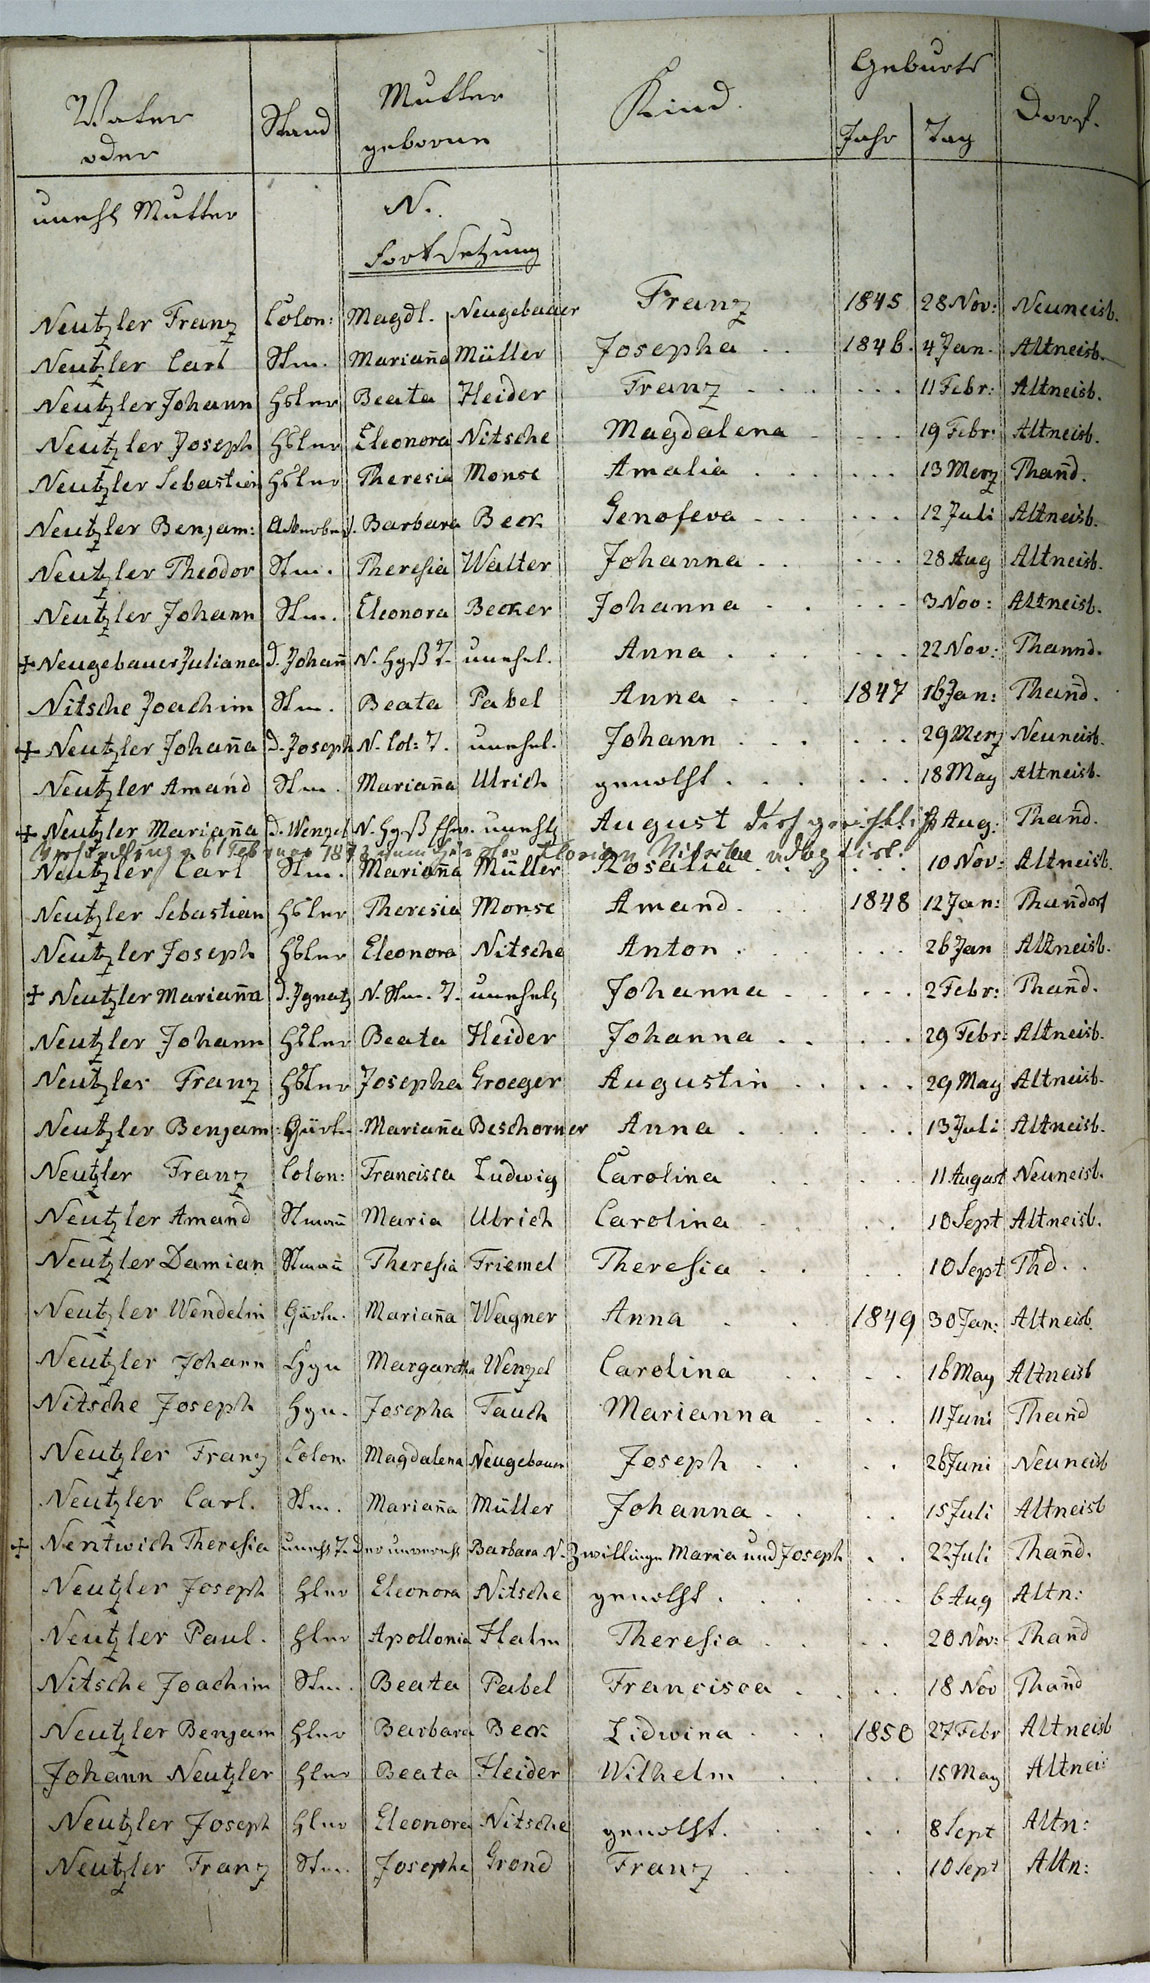 Vater Stand Mutter Kind. Geburts Dorf.
oder geborne Jahr Tag
unehl Mutter N.
Fortsetzung
Neutzler Franz Colon: Magdl. Neugebauer Franz 1845 28 Nov: Neuneisb.
Neutzler Carl Stm. Mariana Müller Josepha . . 1846. 4 Jan. Altneisb.
Neutzler Johann Hslr Beata Heider Franz . . . . . . 11 Febr: Altneisb.
Neutzler Joseph Hslr Eleonora Nitsche Magdalena . . . . 19 Febr: Altneisb.
Neutzler Sebastian Hslr Theresia Monse Amalia . . . . . . 13 Merz Thand.
Neutzler Benjam: Barbara Beck Genofeva . . . . . . 12 Juli Altneisb.
Neutzler Theodor Stm. Theresia Walter Johanna . . . . . 28 Aug Altneisb.
Neutzler Johann Stm. Eleonora Becker Johanna . . . . . 3 Nov: Altneisb.
+ Neugebauer Juliana d. Johann N. Hgß T. unehel. Anna . . . . . . 22 Nov: Thannd.
Nitsche Joachim Stm. Beata Pabel Anna . . . 1847 16 Jan: Thand.
+ Neutzler Johana d. Joseph N. Col: T. unehel. Johann . . . . . . 29 Merz Neuneisb.
Neutzler Amand Stm. Mariana Ulrich genothf. . . . . . 18 May Altneisb.
+ Neutzler Mariana d. Wenzel N. Hgß unehl August Aug: Thand.
Florian Nitsche
Neutzler Carl Stm. Mariana Müller Rosalia . . . . . 10 Nov: Altneisb.
Neutzler Sebastian Hslr Theresia Monse Amand. . . . 1848 12 Jan: Thandorf
Neutzler Joseph Hslr Eleonora Nitsche Anton . . . . . 26 Jan Altneisb.
+ Neutzler Mariana d. Ignatz N. Stm. T. unehel Johanna . . . . . 2 Febr: Thand.
Neutzler Johann Hslr Beata Heider Johanna . . . . . 29 Febr: Altneisb.
Neutzler Franz Hslr Josepha Groeger Augustin . . . . . 29 May Altneisb.
Neutzler Benjam: Gärtn. Mariana Beschorner Anna . . . . . . 13 Juli Altneisb.
Neutzler Franz Colon: Francisca Ludwig Carolina . . . . 11 August Neuneisb.
Neutzler Amand Stman Maria Ulrich Carolina . . . . 10 Sept Altneisb.
Neutzler Damian Stman Theresia Friemel Theresia . . . . 10 Sept Thd. .
Neutzler Wendelin Gärtn. Mariana Wagner Anna . . . 1849 30 Jan: Altneisb.
Neutzler Johann Hgn Margaretha Wenzel Carolina . . . . 16 May Altneisb
Nitsche Joseph Hgn. Josepha Tauch Marianna . . . 11 Juni Thand
Neutzler Franz Colon. Magdalena Neugebauer Joseph . . . . 26 Juni Neuneisb
Neutzler Carl. Stm. Mariana Müller Johanna . . . . 15 Juli Altneisb
+ Nentwich Theresia unehl T. der unverehl Barbara N. Zwillinge Maria und Joseph . . 22 Juli Thand.
Neutzler Joseph Hlr Eleonora Nitsche genothf. . . . . . 6 Aug Altn:
Neutzler Paul. Hlr Apollonia Halm Theresia . . . . 20 Nov: Thand
Nitsche Joachim Stm. Beata Pabel Francisca . . . . 18 Nov Thand
Neutzler Benjam Hlr Barbara Beck Lidwina . . . 1850 27 Febr Altneisb
Johann Neutzler Hlr Beata Heider Wilhelm . . . . . 15 May Altneis
Neutzler Joseph Hlr Eleonora Nitsche genothf. . . . . 8 Sept Altn:
Neutzler Franz Stm. Josepha Grond Franz . . . . 10 Sept Altn: